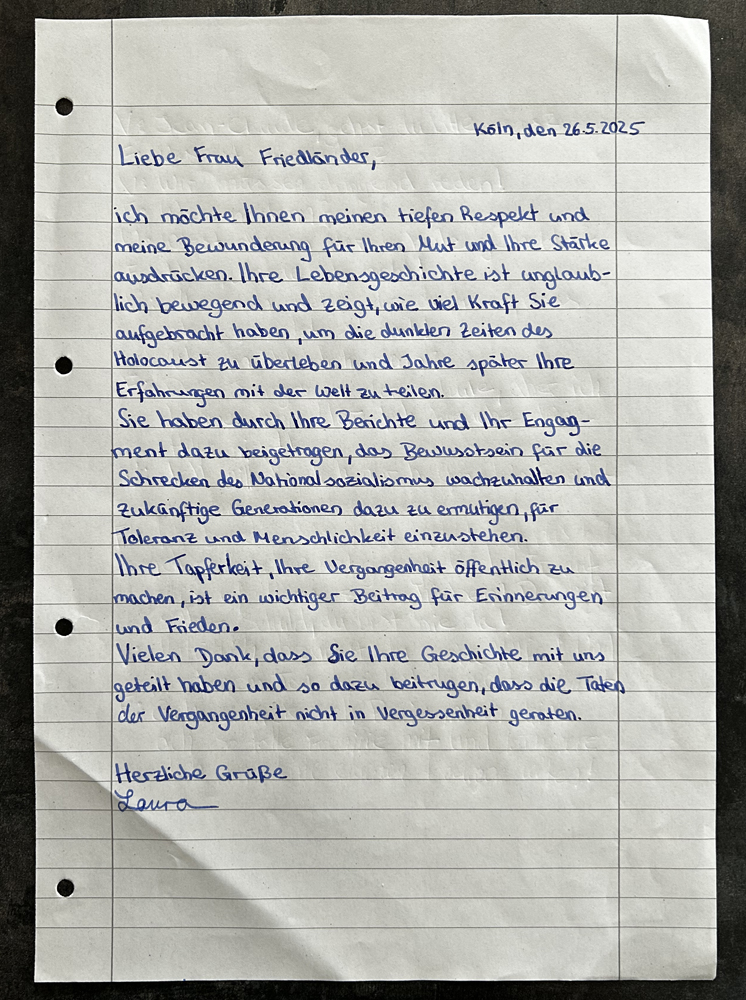 Köln, den 26.5.2025
Liebe Frau Friedländer,
ich möchte Ihnen meinen tiefen Respekt und
meine Bewunderung für Ihren Mut und Ihre Stärke
ausdrücken. Ihre Lebensgeschichte ist unglaub-
lich bewegend und zeigt, wie viel Kraft Sie
aufgebracht haben, um die dunklen Zeiten des
Holocaust zu überleben und Jahre später Ihre
Erfahrungen mit der Welt zu teilen.
Sie haben durch Ihre Berichte und Ihr Engag-
ment dazu beigetragen, das Bewusstsein für die
Schrecken des Nationalsozialismus wachzuhalten und
zukünftige Generationen dazu zu ermutigen, für
Toleranz und Menschlichkeit einzustehen.
Ihre Tapferkeit, Ihre Vergangenheit öffentlich zu
machen, ist ein wichtiger Beitrag für Erinnerungen
und Frieden.
Vielen Dank, dass Sie Ihre Geschichte mit uns
geteilt haben und so dazu beitrugen, dass die Taten
der Vergangenheit nicht in Vergessenheit geraten.
Herzliche Grüße
Laura